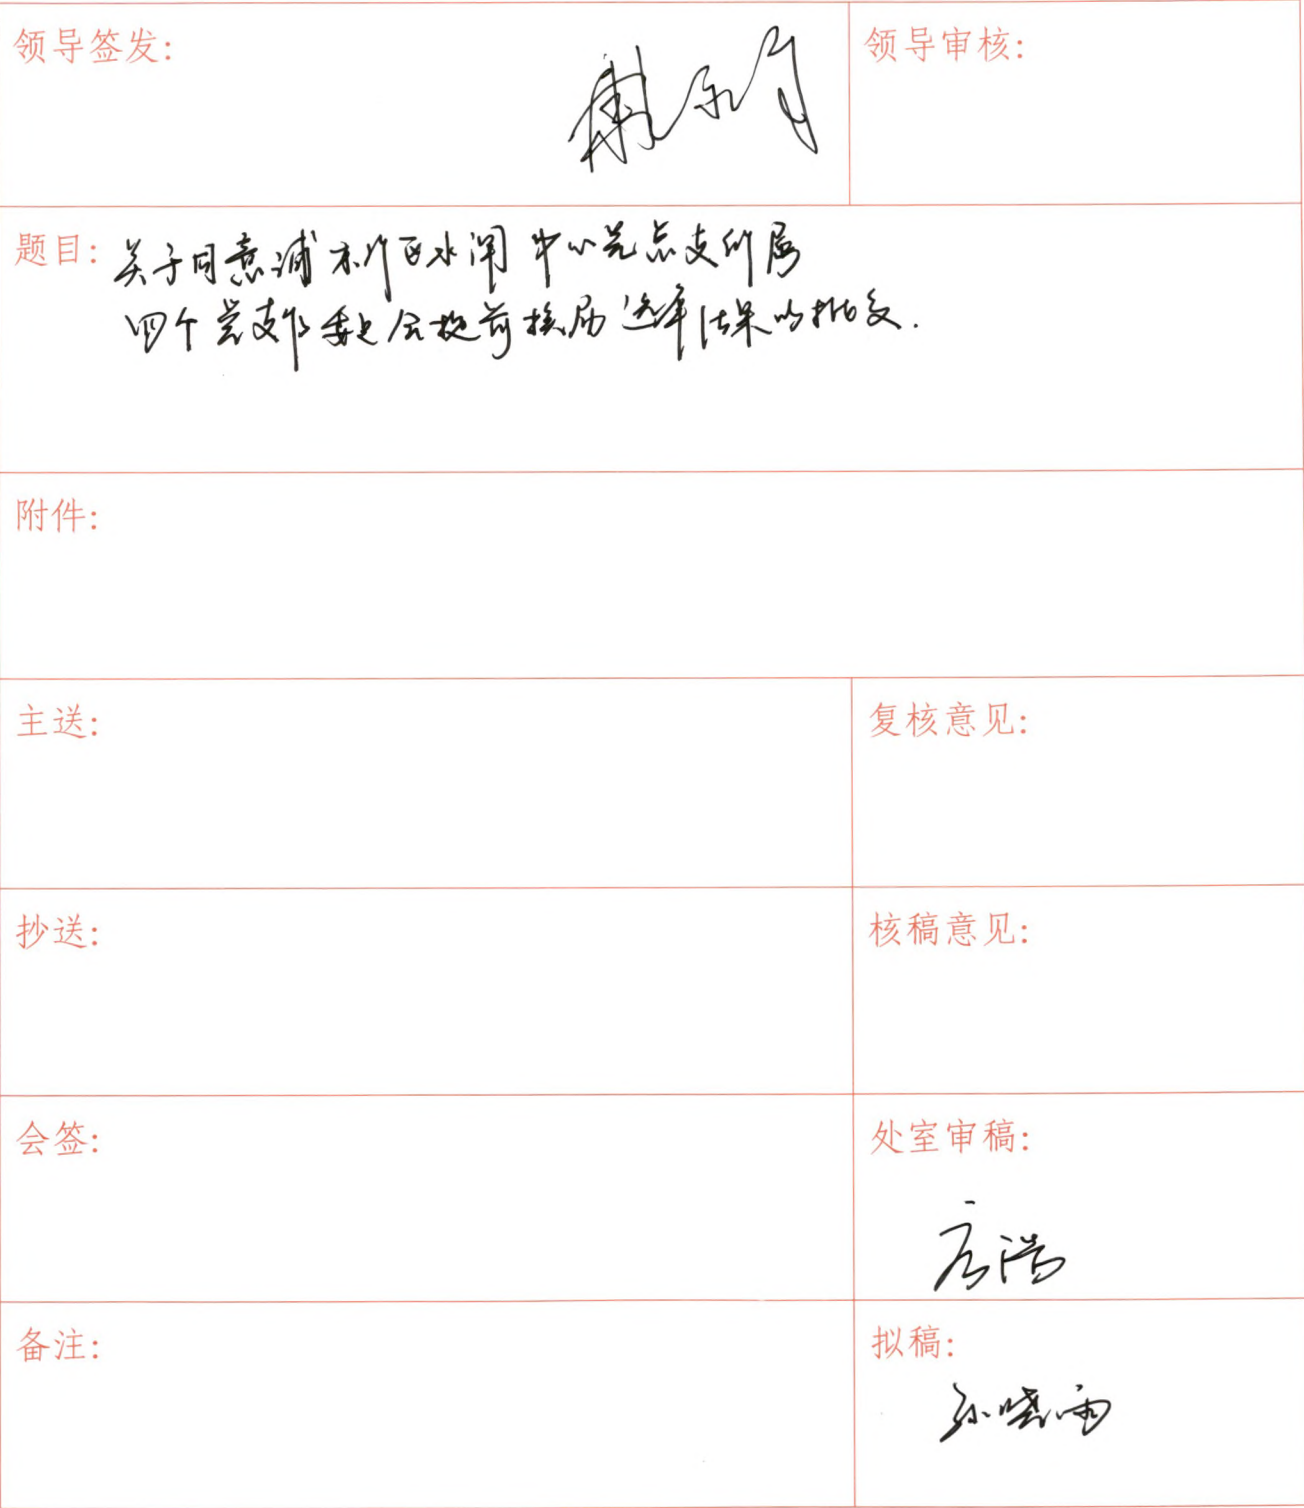 领导签发:
领导审核:
题目: 关于同意浦东新区水闸中心党总支所属
四个党支部委员会提前换届选举结果的批复.
附件:
主送:
复核意见:
抄送:
核稿意见:
会签:
处室审稿:
备注:
拟稿:
孙晓雨